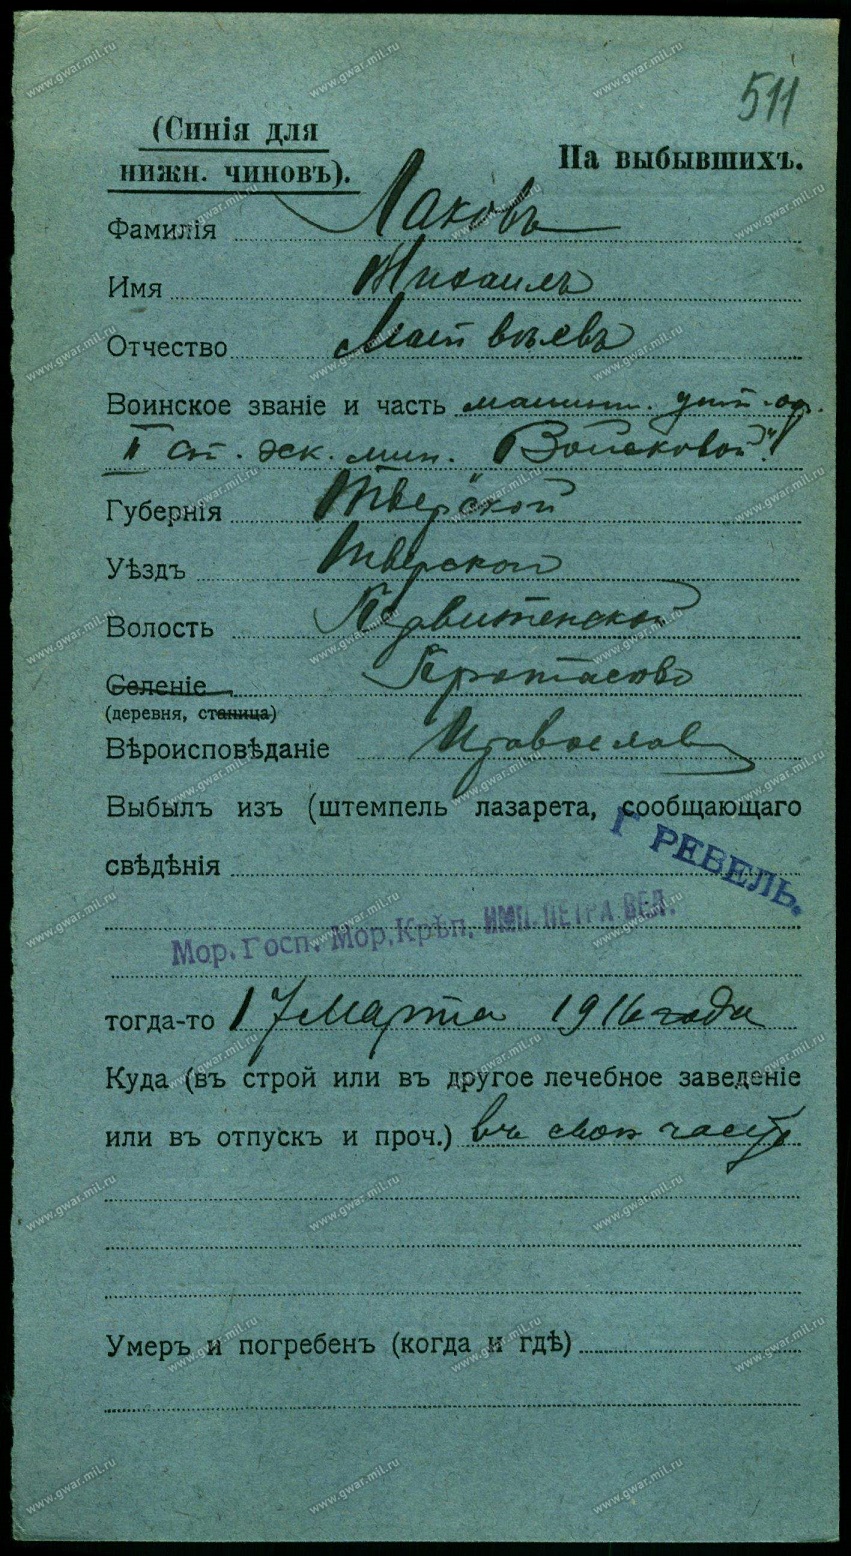 511
(Синія для
нижн. чиновъ).
На выбывшихъ.
Фамилія Лаковъ
Имя Михаилъ
Отчество Матвѣевъ
Воинское званіе и часть машин. унт.-оф.
II ст. эск. мин. "Войсковой"
Губернія Тверской
Уѣздъ Тверской
Волость
Селеніе Протасово
(деревня, станица)
Вѣроисповѣданіе Православ
Выбылъ изъ (штемпель лазарета, сообщающаго
свѣдѣнія
Г РЕВЕЛЬ.
Мор. Госп. Мор. Крѣп. ИМП. ПЕТРА ВЕЛ.
тогда-то 17 Марта 1916 года
Куда (въ строй или въ другое лечебное заведеніе
или въ отпускъ и проч.) въ свою часть
Умеръ и погребенъ (когда и гдѣ)
www.gwar.mil.ru